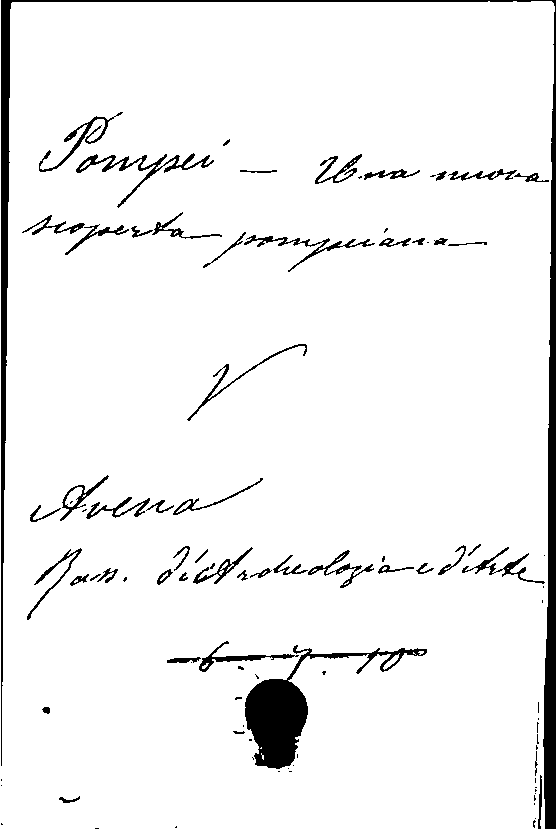 Pompei — Una nuova
scoperta pompeiana
V
Avena
Rass. d'Archeologia e d'Arte
6. 7. 10